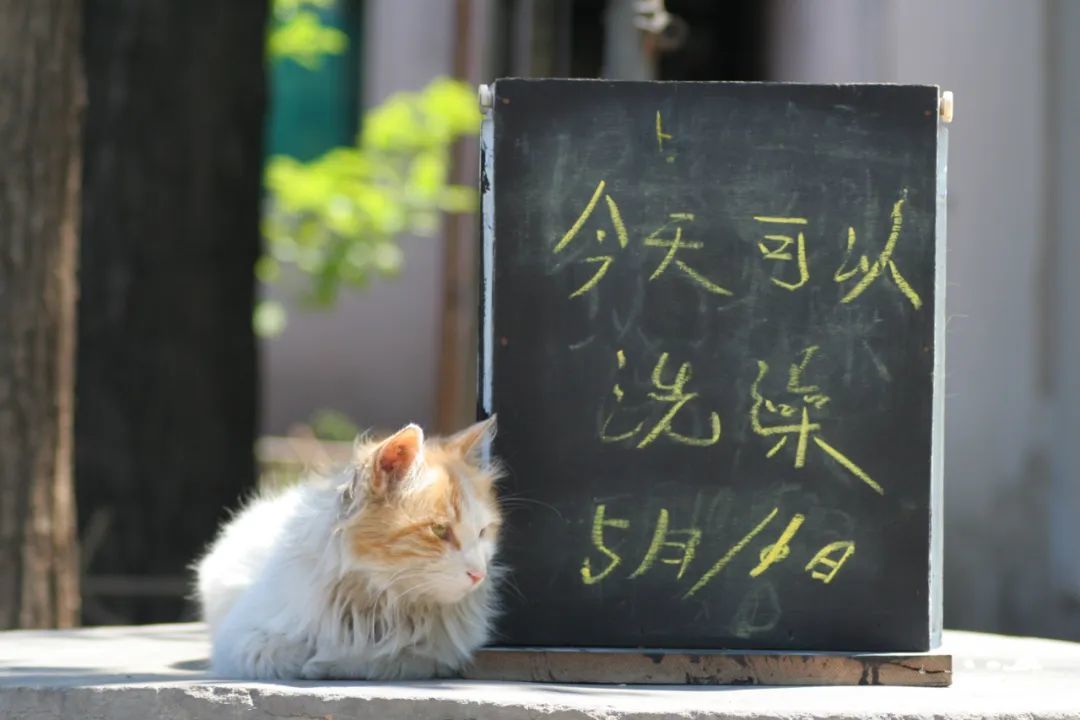 今天可以
洗澡
5月 日